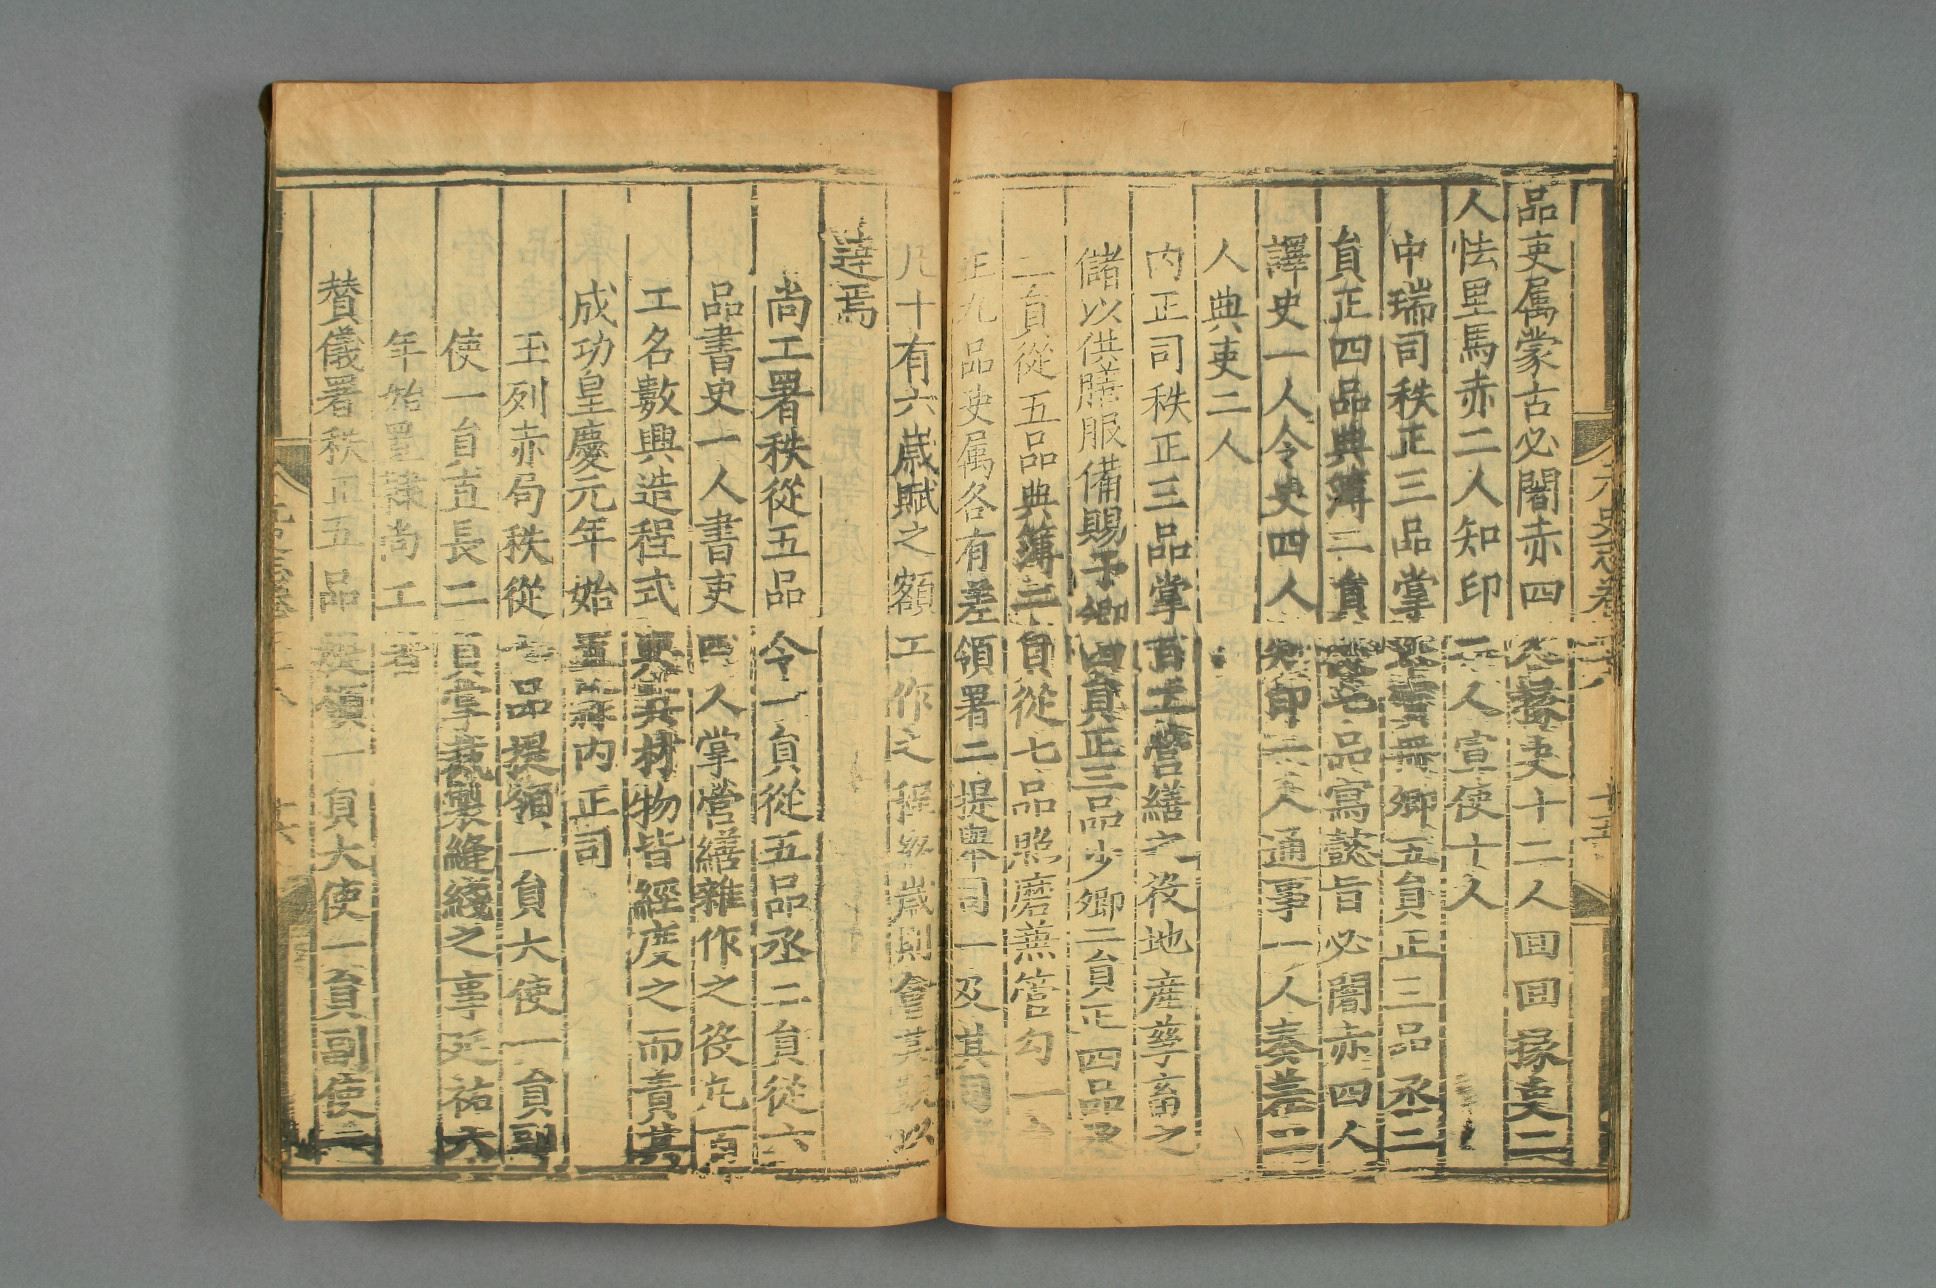 品吏属蒙古必闍赤四人掾吏十二人回回掾吏二
人怯里馬赤二人知印二人宣使十人
中瑞司秩正三品掌奉寳冊卿五員正三品丞二
員正四品典簿二員從七品寫懿旨必闍赤四人
譯史一人令史四人知印二人通事一人奏差二
人典吏二人
内正司秩正三品掌百工營繕之役地産孳畜之
儲以供膳服備賜予卿四員正三品少卿二員正四品丞
二員從五品典簿二員從七品照磨兼管勾一
正九品吏属各有差領署二提舉司一及其司
凡十有六歲賦之額工作之程終歲則會其數以
達焉
尚工署秩從五品令一員從五品丞二員從六
品書史一人書吏四人掌營繕雜作之役凢百
工名數興造程式與其材物皆經度之而責其
成功皇慶元年始置隸内正司
玉列赤局秩從七品提領一員大使一員副
使一員直長二員掌裁製縫綫之事延祐六
年始置隸尚工署
贊儀署秩正五品提領一員大使一員副使二
元史志卷三十八
十五
十六